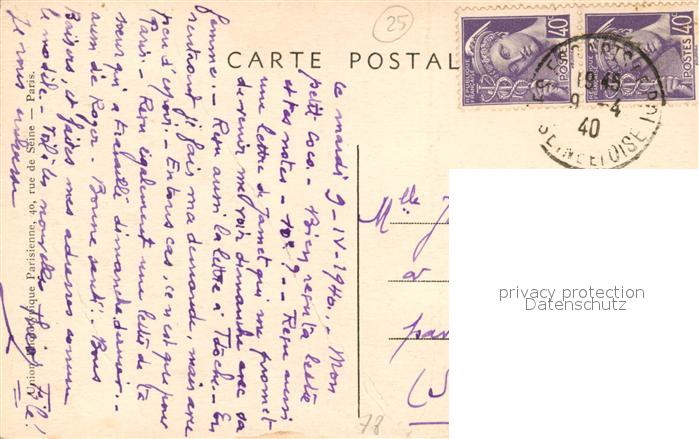 25
CARTE POSTALE
RÉPUBLIQUE FRANÇAISE
40c
POSTES
40c
POSTES
1945
9 -4
40
SEINE ET OISE
Le mardi 9-IV-1940.- Mon
petit Coco.- Bien reçu ta lettre
et tes notes - Reçu aussi
une lettre de Janet qui me promet
de venir me voir dimanche avec sa
femme.- Reçu aussi la lettre à En
rentrant j'ai fais ma demande, mais avec
peu d'espoir.- En tous cas, ce n'est que pour
Paris.- Reçu également une lettre de
qui a travaillé dimanche dernier.-
aussi de Roger - Bonne santé.- Bons
Baisers, et faites mes adresses comme
le modèle - Voilà les nouvelles
Je vous embrasse
Union Parisienne, 40, rue de Seine — Paris.
Mlle
a
(S
78
privacy protection
Datenschutz